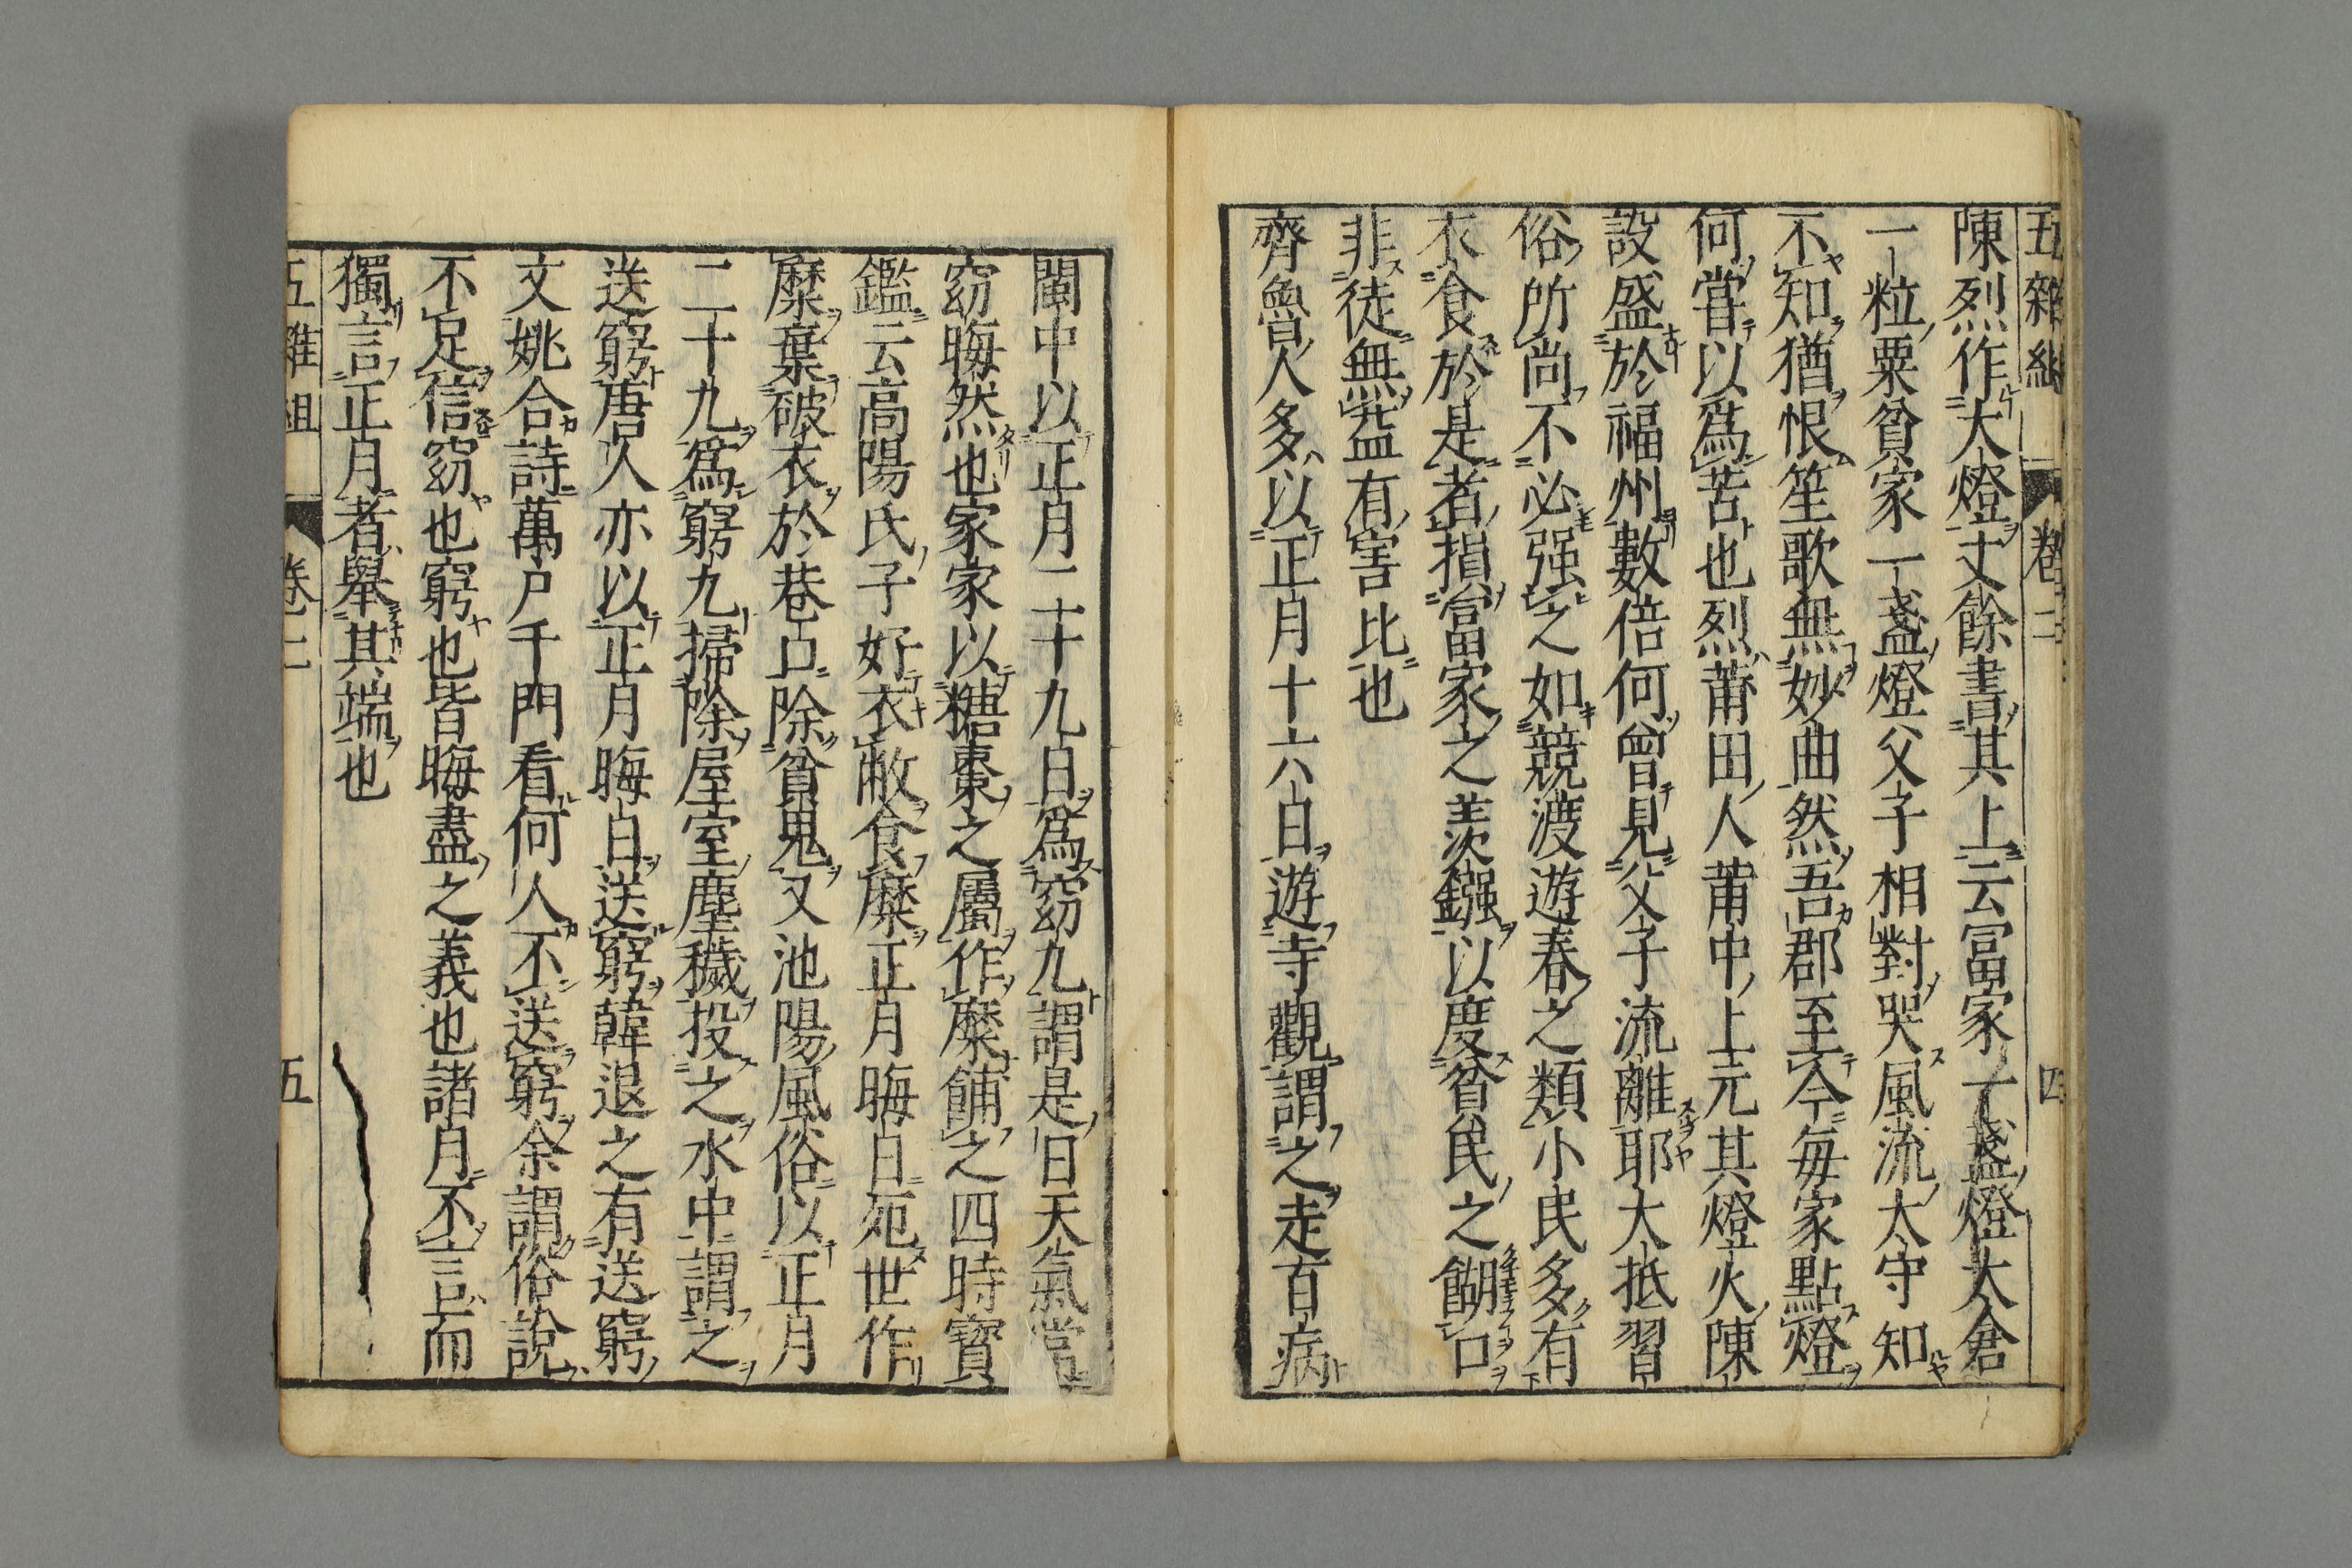 五雜組 卷二 四
陳烈作大燈丈餘書其上云富家一盞燈太倉
一粒粟貧家一盞燈父子相對哭風流太守知
不知猶恨笙歌無妙曲然吾郡至今每家點燈
何嘗以爲苦也烈莆田人莆中上元其燈火陳
設盛於福州數倍何曾見父子流離耶大抵習
俗所尚不必强之如競渡遊春之類小民多有
衣食於是者損富家之羨鏹以度貧民之餬口
非徒無益有害比也
齊魯人多以正月十六日遊寺觀謂之走百病
閩中以正月二十九日爲窈九謂是日天氣常
窈晦然也家家以糖棗之屬作糜餔之四時寶
鑑云高陽氏子好衣敝食糜正月晦日死世作
糜棄破衣於巷口除貧鬼又池陽風俗以正月
二十九爲窮九掃除屋室塵穢投之水中謂之
送窮唐人亦以正月晦日送窮韓退之有送窮
文姚合詩萬戶千門看何人不送窮余謂俗說
不足信窈也窮也皆晦盡之義也諸月不言而
獨言正月者舉其端也
五雜組 卷二 五